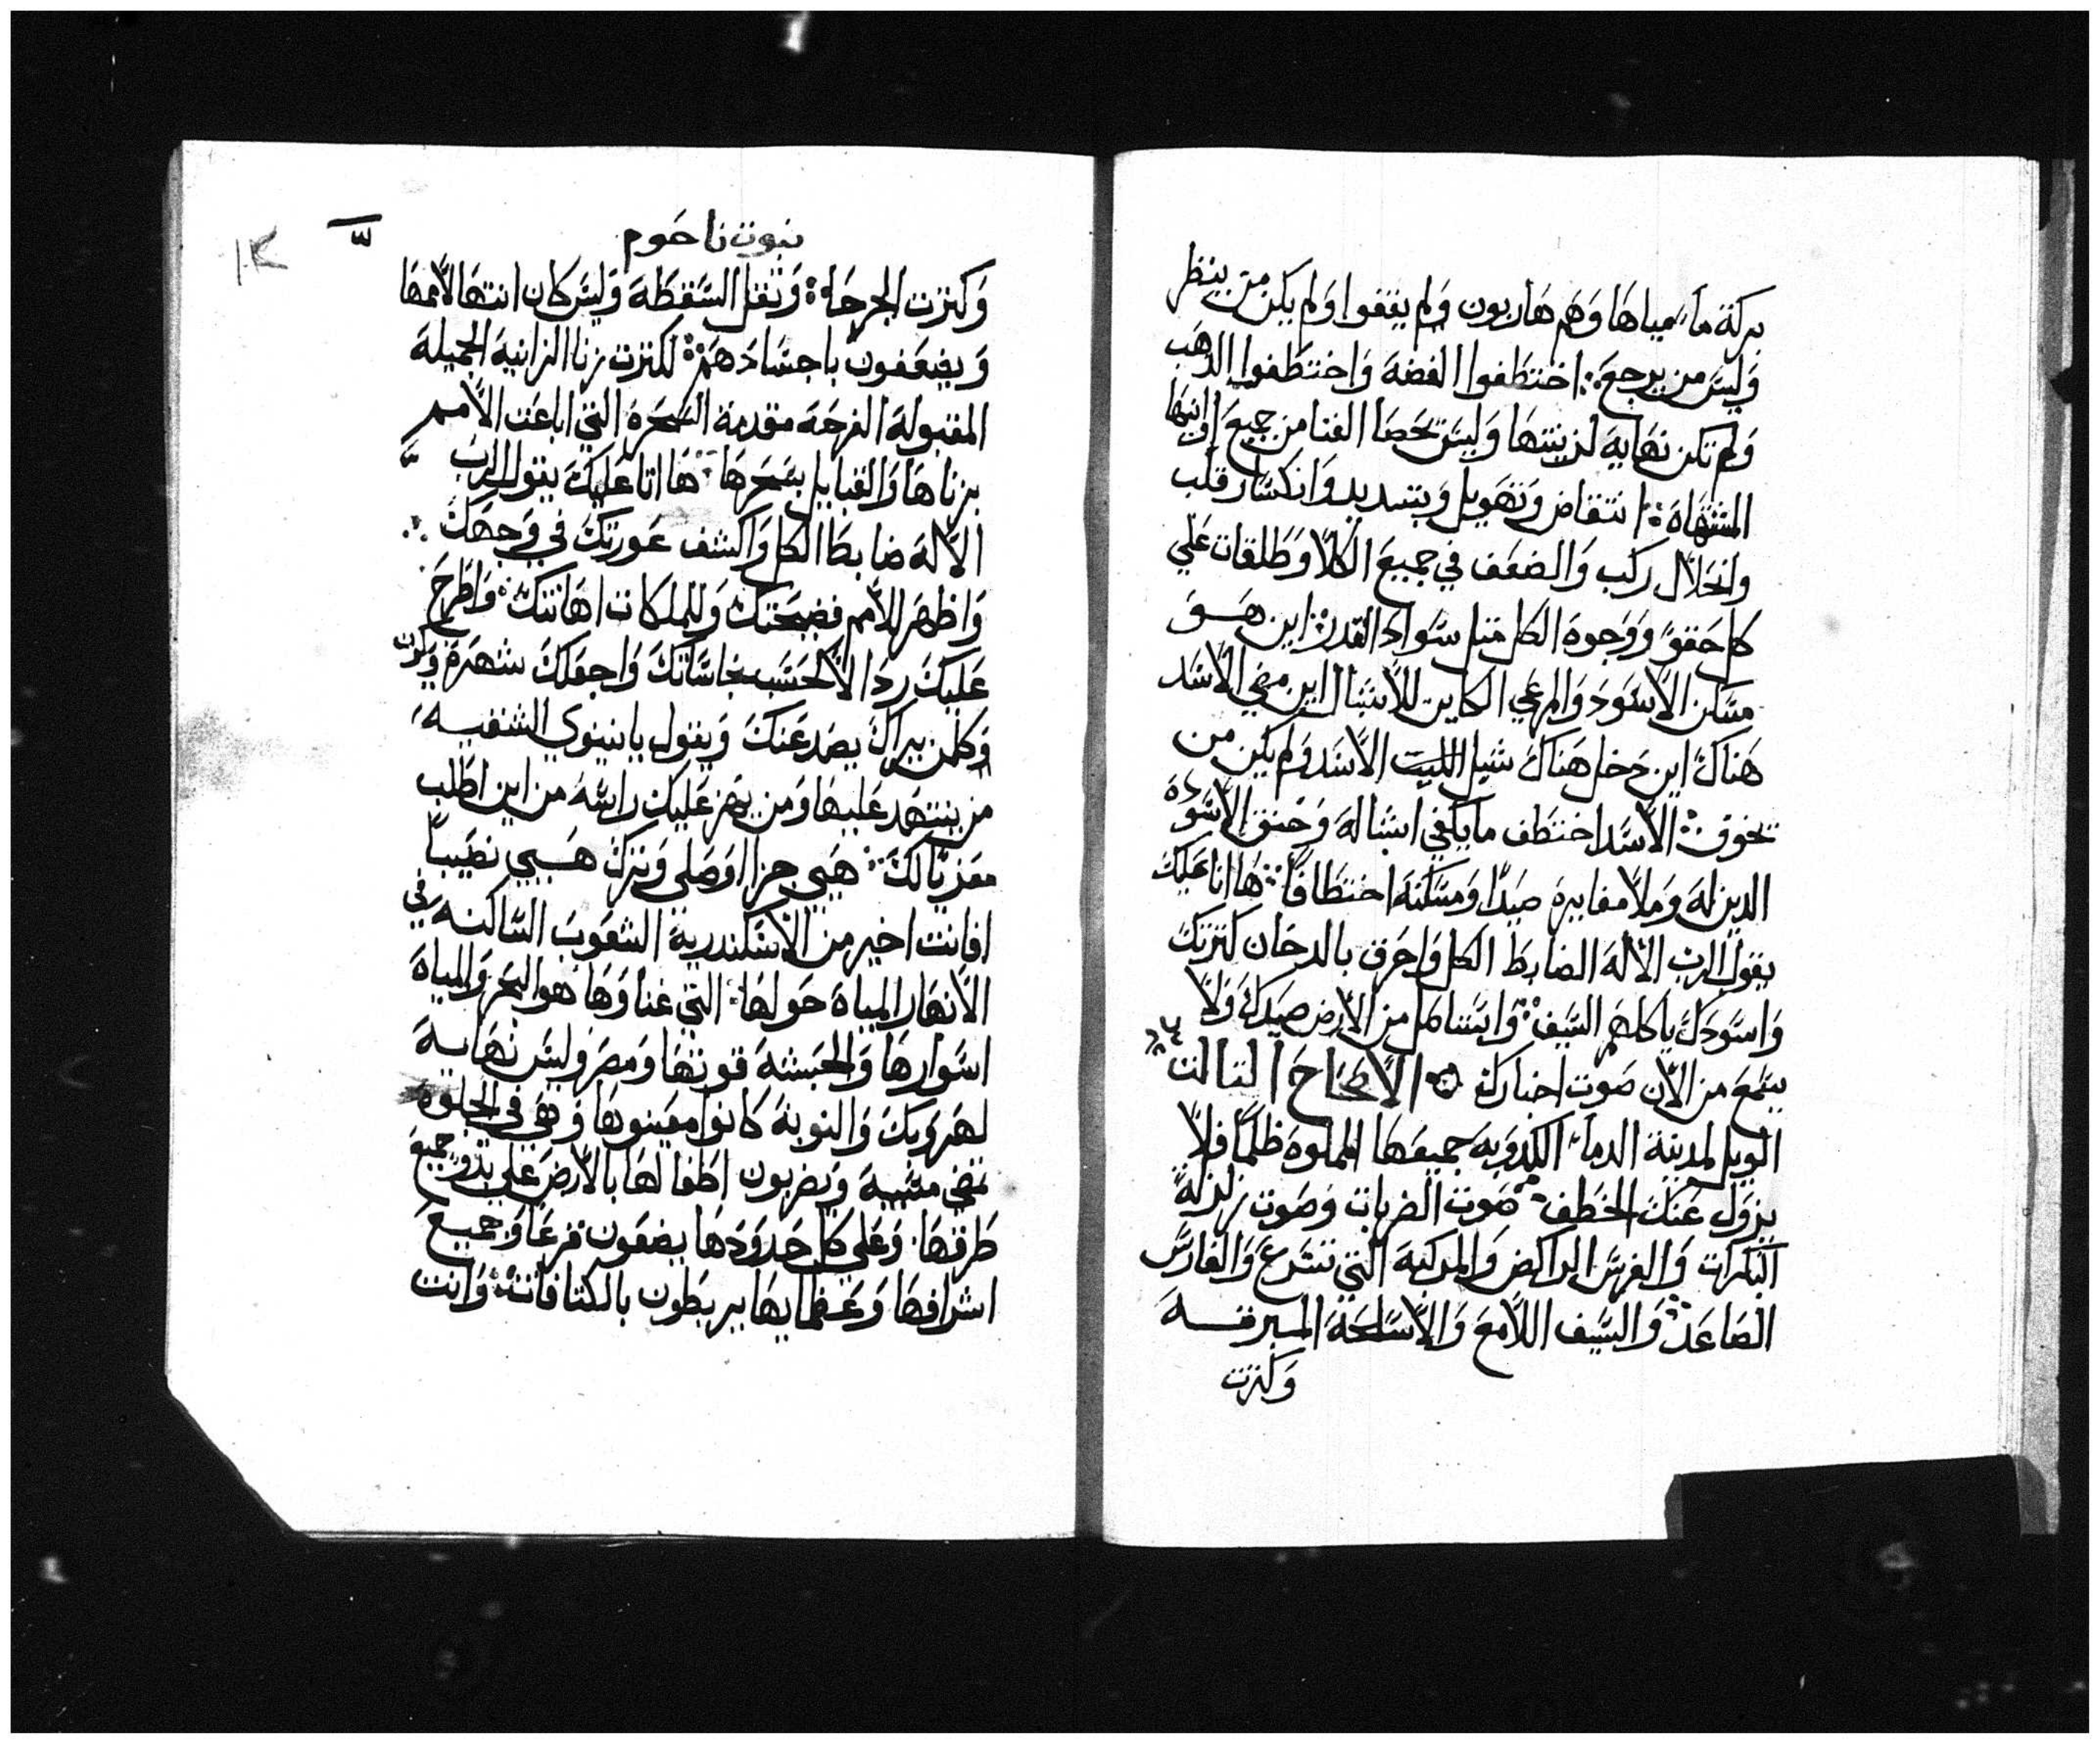 بركة ماء مياها وهم هاربون ولم يقفوا ولم يكن من ينظر
وليس من يرجع: اختطفوا الفضه واختطفوا الدهب
ولم تكن نهاية لزينتها وليس تحصا الغنا من جميع اوانيها
المشتهاه: انتفاض وتهويل وتبديد وانكسار قلب
وانحلال ركب والضعف في جميع الكلا وطلقات علي
كل حقو ووجوه الكل مثل سواد القدر: اين هو
مسكن الاسود والمرعي الكاين للاشبال اين مضي الاسد
هناك اين دخل هناك شبل الليت الاسد ولم يكن من
يخوف: الاسد اختطف ما يكفي اشباله وخنق لاسوده
الدين له وملا مغايره صيدا ومسكنه اختطافا: ها انا عليك
يقول الرب الاله الضابط الكل واحرق بالدخان كترتك
واسودك ياكلهم السيف: وابتنامل من الارض صيدك ولا
يسمع من الان صوت اخبارك الاصحاح التالت
الويل لمدينة الدماء الكدوبه جميعها المملوه ظلما فلا
يزول عنك الخطف: صوت الضربات وصوت زلزلة
البكرات والفرس الراكض والمركبه التي تتسرع والفارس
الصاعد: والسيف اللامع والاسلحه المبرقه
وكترت
نبوت ناحوم
وكترت الجرحاء: وثقل السقطه وليس كان انتها لاممها
ويضعفون باجسادهم: لكترت زنا الزانيه الجميله
المقبوله الفرحه مقدمة السحره التي اباعت الامم
بزناها والقبايل بسحرها: ها انا عليك يقول الرب
الاله ضابط الكل واكشف عورتك في وجهك
واظهر للامم فضيحتك وللملكات اهانتك: واطرح
عليك ردالا لحسب نجاساتك واجعلك شهره ويكون
وكلمن يراك يصد عنك ويقول يا نينوي الشقيه
من يتنهد عليها ومن يهز عليك راسه من اين اطلب
معزيا لك: هيي جزا اوصلي وترك هيبي نصيبا
افانت اخير من الاسكندرية الشعوب الساكنه في
الانهار المياه حولها: التي غناوها هو البحر والمياه
اسوارها والحبشه قوتها ومصر وليس نهايه
لهروبك والنوبة كانوا معينوها وهي في الجلوه
تمضي مسبيه ويضربون اطفالها بالارض علي بدو جميع
طرقها. وعلي كل حدودها يضعون قرعا وجميع
اشرافها وعظمايها يربطون بالكتافات: وانت